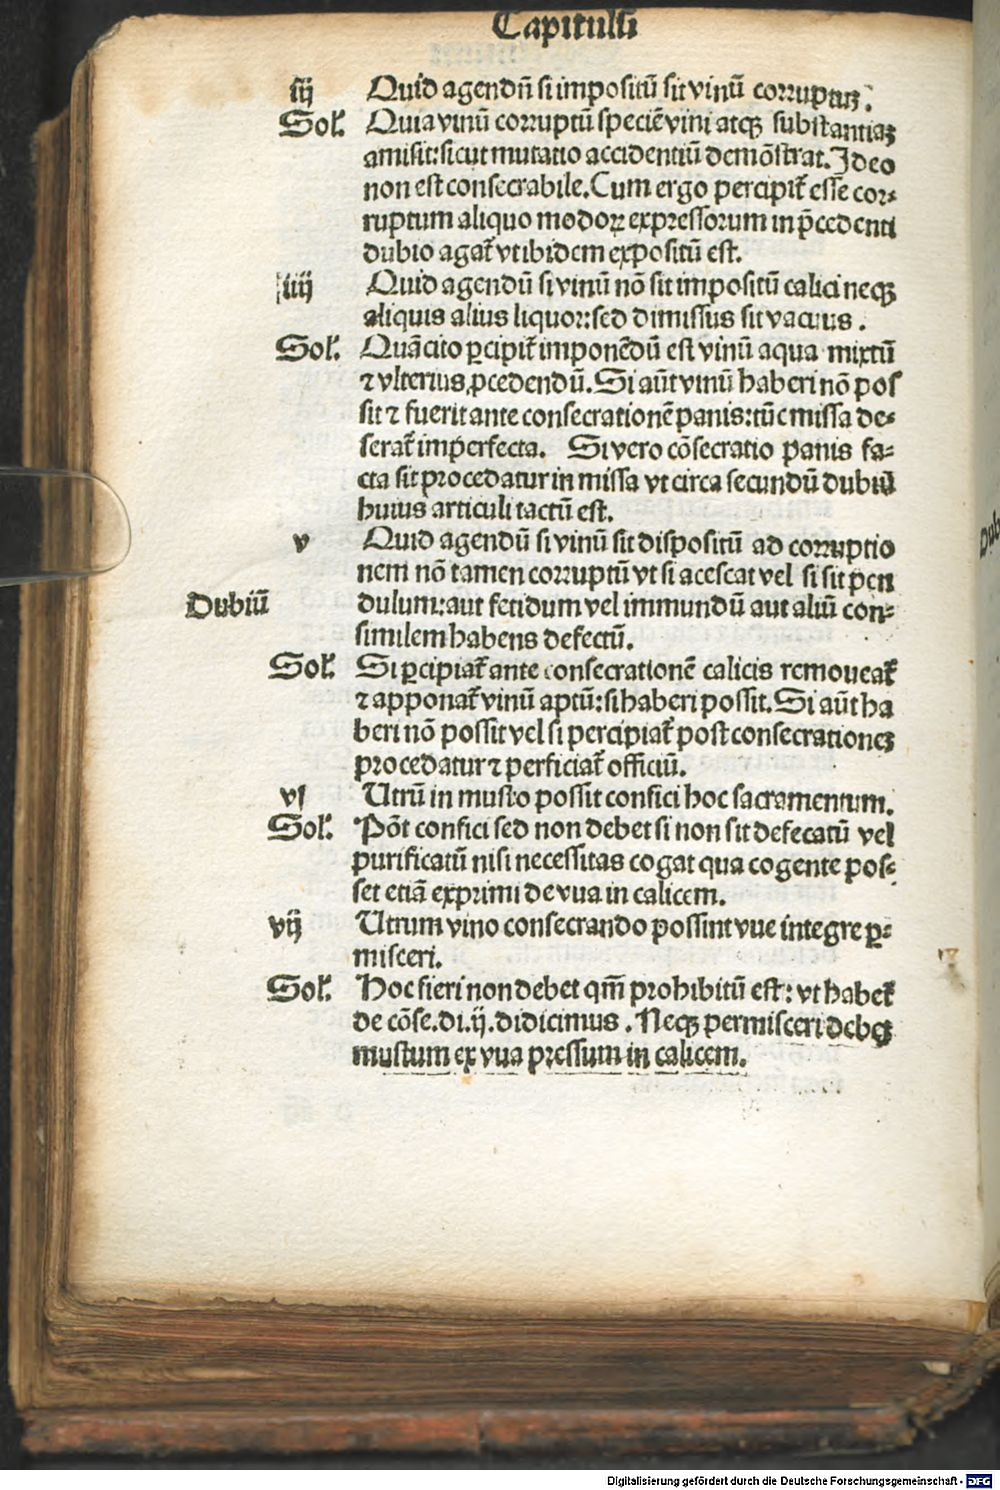 Capitulū
iij Quid agendū si impositū sit vinū corruptuꝫ.
Sol̛. Quia vinū corruptū speciē vini atqꝫ substantiaꝫ
amisit: sicut mutatio accidentiū demōstrat. Ideo
non est consecrabile. Cum ergo percipit᷑ esse cor⸗
ruptum aliquo modoꝝ expressorum in p̄cedenti
dubio agat᷑ vt ibidem expositū est.
iiij Quid agendū si vinū nō sit impositū calici neqꝫ
aliquis alius liquor: sed dimissus sit vacuus.
Sol̛. Quācito ꝑcipit᷑ imponēdū est vinū aqua mixtū
⁊ vlterius ꝓcedendū. Si aūt vinū haberi nō pos
sit ⁊ fuerit ante consecrationē panis: tūc missa de⸗
serat᷑ imperfecta. Si vero cōsecratio panis fa⸗
cta sit procedatur in missa vt circa secundū dubiū
huius articuli tactū est.
v Quid agendū si vinū sit dispositū ad corruptio
nem nō tamen corruptū vt si acescat vel si sit pen
Dubiū dulum: aut fetidum vel immundū aut aliū con⸗
similem habens defectū.
Sol̛. Si ꝑcipiat᷑ ante consecrationē calicis remoueat᷑
⁊ apponat᷑ vinū aptū: si haberi possit. Si aūt ha
beri nō possit vel si percipiat᷑ post consecrationeꝫ
procedatur ⁊ perficiat᷑ officiū.
vj Utrū in musto possit confici hoc sacramentum.
Sol̛. Pōt confici sed non debet si non sit defecatū vel
purificatū nisi necessitas cogat qua cogente pos⸗
set etiā exprimi de vua in calicem.
vij Utrum vino consecrando possint vue integre ꝑ⸗
misceri.
Sol̛. Hoc fieri non debet qm̄ prohibitū est: vt habet᷑
de cōse. di. ij. didicimus. Neqꝫ permisceri debeꝫ
mustum ex vua pressum in calicem.
Digitalisierung gefördert durch die Deutsche Forschungsgemeinschaft - DFG